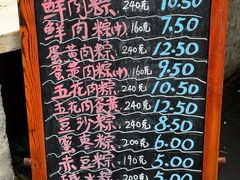 鲜肉粽 240克 10.50
鲜肉粽(中) 160克 7.50
蛋黄肉粽 240克 12.50
蛋黄肉粽(中) 160克 9.50
五花肉粽 240克 10.50
五花肉蛋黄 240克 12.50
豆沙粽 240克 8.50
蜜枣粽 200克 6.00
赤豆粽 190克 5.00
粽 200克 5.00